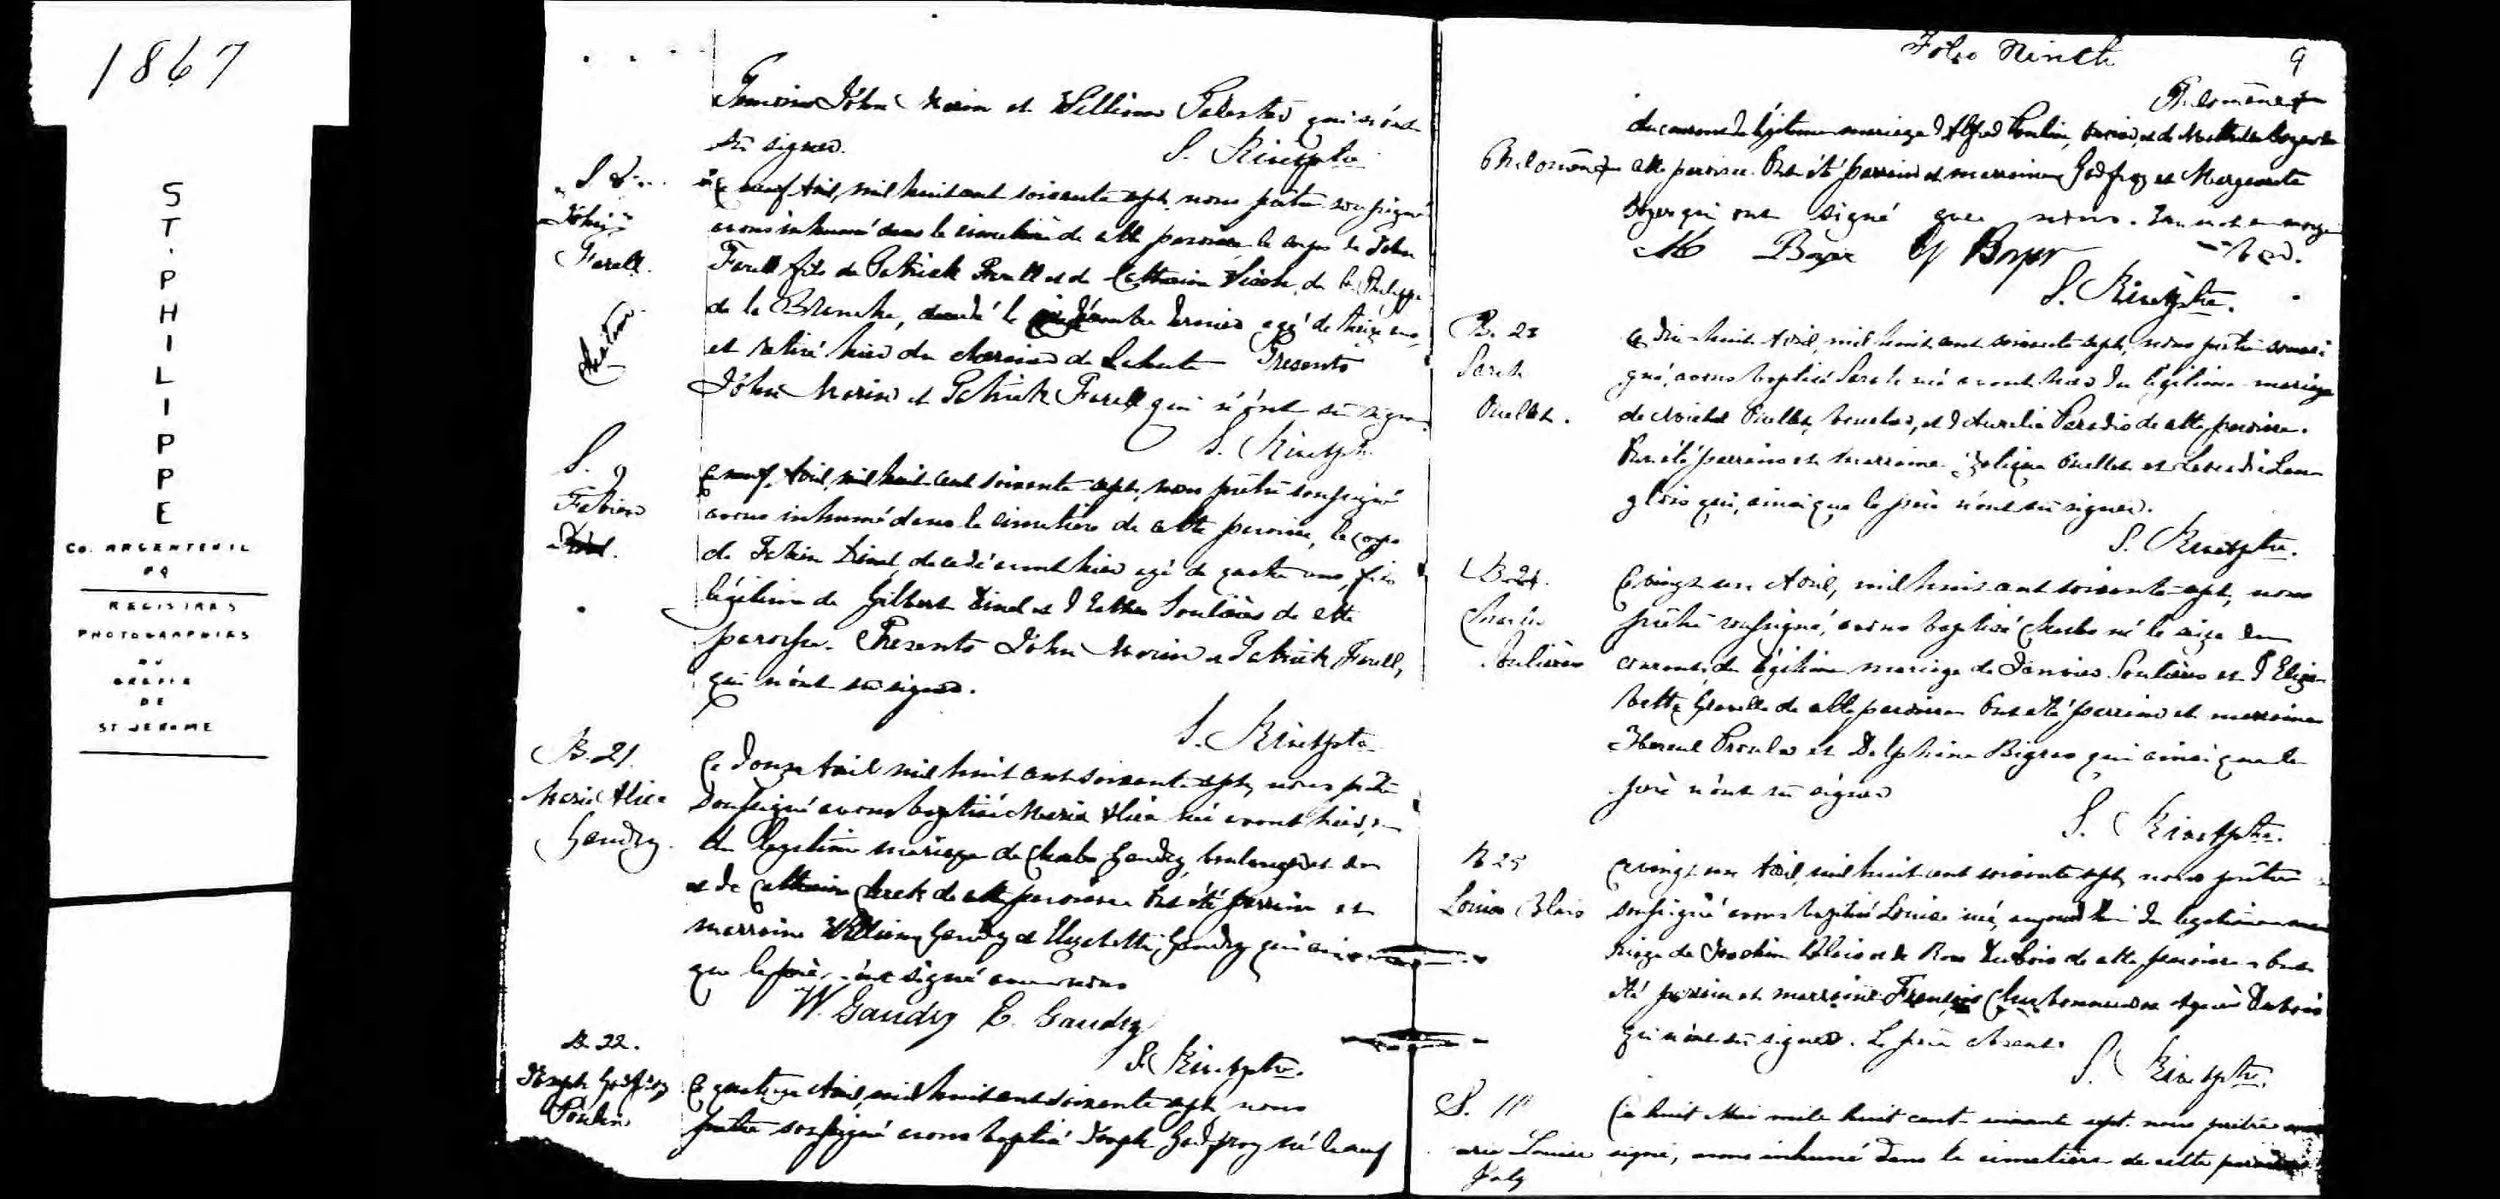 1867
ST. PHILIPPE
Co. ARGENTEUIL
PQ
REGISTRES
PHOTOGRAPHIES
AU
GREFFE
DE
ST JEROME
John Morin et William qui n'ont
su signer.
S. Rivet ptre
S. 8
John
Farell.
Ce neuf Avril, mil huit cent soixante sept, nous prêtre soussigné
avons inhumé dans le cimetière de cette paroisse le corps de John
Farell fils de Patrick Farell et de Catherine de St. Philippe
de la Branche, décédé le décembre dernier agé de treize ans,
et retiré hier du charnier de Lachute Presents
John Morin et Patrick Farell qui n'ont su signer.
S. Rivet ptre
S. 9
Fabien
Ce neuf Avril, mil huit cent soixante sept, nous prêtre soussigné
avons inhumé dans le cimetière de cette paroisse, le corps
de Fabien décédé avant hier agé de quatre ans, fils
légitime de Gilbert et d'Esther Soulières de cette
paroisse. Presents John Morin et Patrick Farell,
qui n'ont su signer.
S. Rivet ptre
B. 21.
Marie Alice
Gaudry.
Ce douze Avril mil huit cent soixante sept, nous prêtre
soussigné avons baptisé Marie Alice née avant hier,
du légitime mariage de Charles Gaudry, boulanger
et de Catherine de cette paroisse Ont été parrain et
marraine William Gaudry et Elizabeth Gaudry qui ainsi
que le père, ont signé avec nous
W. Gaudry E. Gaudry
S. Rivet ptre.
B. 22.
Joseph Godfroy
Poulin
Ce quatorze Avril, mil huit cent soixante sept nous
prêtre soussigné avons baptisé Joseph Godfroy né le neuf
Folio Ninth 9
Philomène
du courant du légitime mariage d'Alfred Poulin, et de Mathilde Boyer de
Philomène cette paroisse. Ont été parrain et marraine Godfroy et Marguerite
Boyer qui ont signé avec nous. en marge
M Boyer G Boyer
S. Rivet ptre.
B. 23
Sarah
Ouellet.
Ce dix-huit Avril, mil huit cent soixante sept, nous prêtre soussi
gné, avons baptisé Sarah née avant hier du légitime mariage
de Michel Ouellet, et d'Aurelie Paradis de cette paroisse.
Ont été parrain et marraine Ouellet et Lan
glois qui, ainsi que le père n'ont su signer.
S. Rivet ptre.
B. 24.
Charles
Soulières
Ce vingt un Avril, mil huit cent soixante sept, nous
prêtre soussigné, avons baptisé Charles né le seize du
courant, du légitime mariage de Janvier Soulières et d'Eliza
beth Gravelle de cette paroisse Ont été parrain et marraine
Proulx et Delphine Bigras qui ainsi que le
père n'ont su signer
S. Rivet ptre.
B 25
Louise Blais
Ce vingt un Avril, mil huit cent soixante sept, nous prêtre
soussigné avons baptisé Louise née, aujourd'hui du légitime ma
riage de Joachim Blais et de Rose Dubois de cette paroisse Ont
été parrain et marraine François Charbonneau et Dubois
qui n'ont su signer. Le père absent.
S. Rivet ptre.
S. 11
arie Louise
July
Ce huit Mai mille huit cent soixante sept nous prêtre
signé, avons inhumé dans le cimetière de cette paroisse